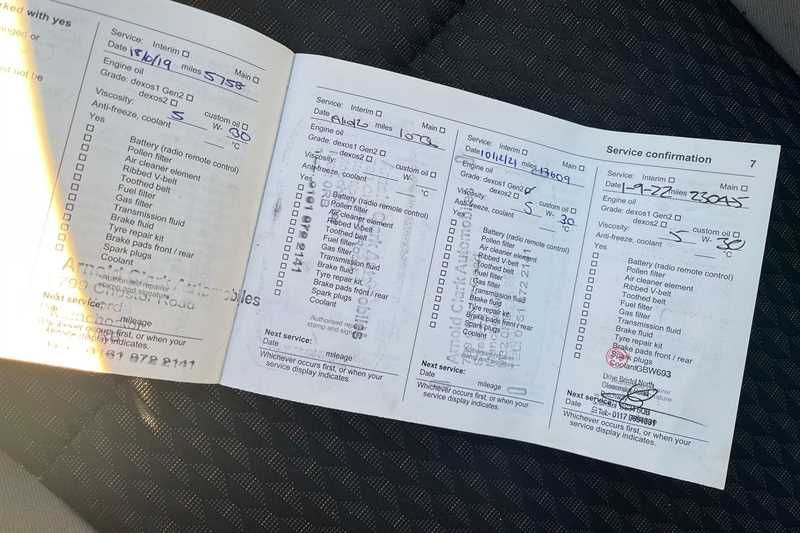 rked with yes
anged or
not be
Service: Interim
Main
Date 18/0/19 miles 5758
Engine oil
Grade: dexos1 Gen2
dexos2 custom oil
Viscosity: 5 W- 30
Anti-freeze, coolant °C
Yes
Battery (radio remote control)
Pollen filter
Air cleaner element
Ribbed V-belt
Toothed belt
Fuel filter
Gas filter
Transmission fluid
Brake fluid
Tyre repair kit
Brake pads front / rear
Spark plugs
Coolant
Arnold Clark Automobiles
799 Chester Road
Next service:
Date mileage
Whichever occurs first, or when your
service display indicates.
0161 872 2141
Service: Interim
Main
Date miles
Engine oil
Grade: dexos1 Gen2
dexos2 custom oil
Viscosity: W-
Anti-freeze, coolant °C
Yes
Battery (radio remote control)
Pollen filter
Air cleaner element
Ribbed V-belt
Toothed belt
Fuel filter
Gas filter
Transmission fluid
Brake fluid
Tyre repair kit
Brake pads front / rear
Spark plugs
Coolant
Authorised repairer
stamp and signature
Next service:
Date mileage
Whichever occurs first, or when your
service display indicates.
Service: Interim
Main
Date 10/12/21 miles
Engine oil
Grade: dexos1 Gen2
dexos2 custom oil
Viscosity: 5 W- 30
Anti-freeze, coolant °C
Yes
Battery (radio remote control)
Pollen filter
Air cleaner element
Ribbed V-belt
Toothed belt
Fuel filter
Gas filter
Transmission fluid
Brake fluid
Tyre repair kit
Brake pads front / rear
Spark plugs
Coolant
Arnold Clark Automobiles
Next service:
Date mileage
Whichever occurs first, or when your
service display indicates.
Service confirmation 7
Service: Interim
Main
Date 1-9-22 miles 23045
Engine oil
Grade: dexos1 Gen2
dexos2 custom oil
Viscosity: 5 W- 30
Anti-freeze, coolant °C
Yes
Battery (radio remote control)
Pollen filter
Air cleaner element
Ribbed V-belt
Toothed belt
Fuel filter
Gas filter
Transmission fluid
Brake fluid
Tyre repair kit
Brake pads front / rear
Spark plugs
Coolant GBW693
Drive Bristol North
Next service:
Date
Whichever occurs first, or when your
service display indicates.